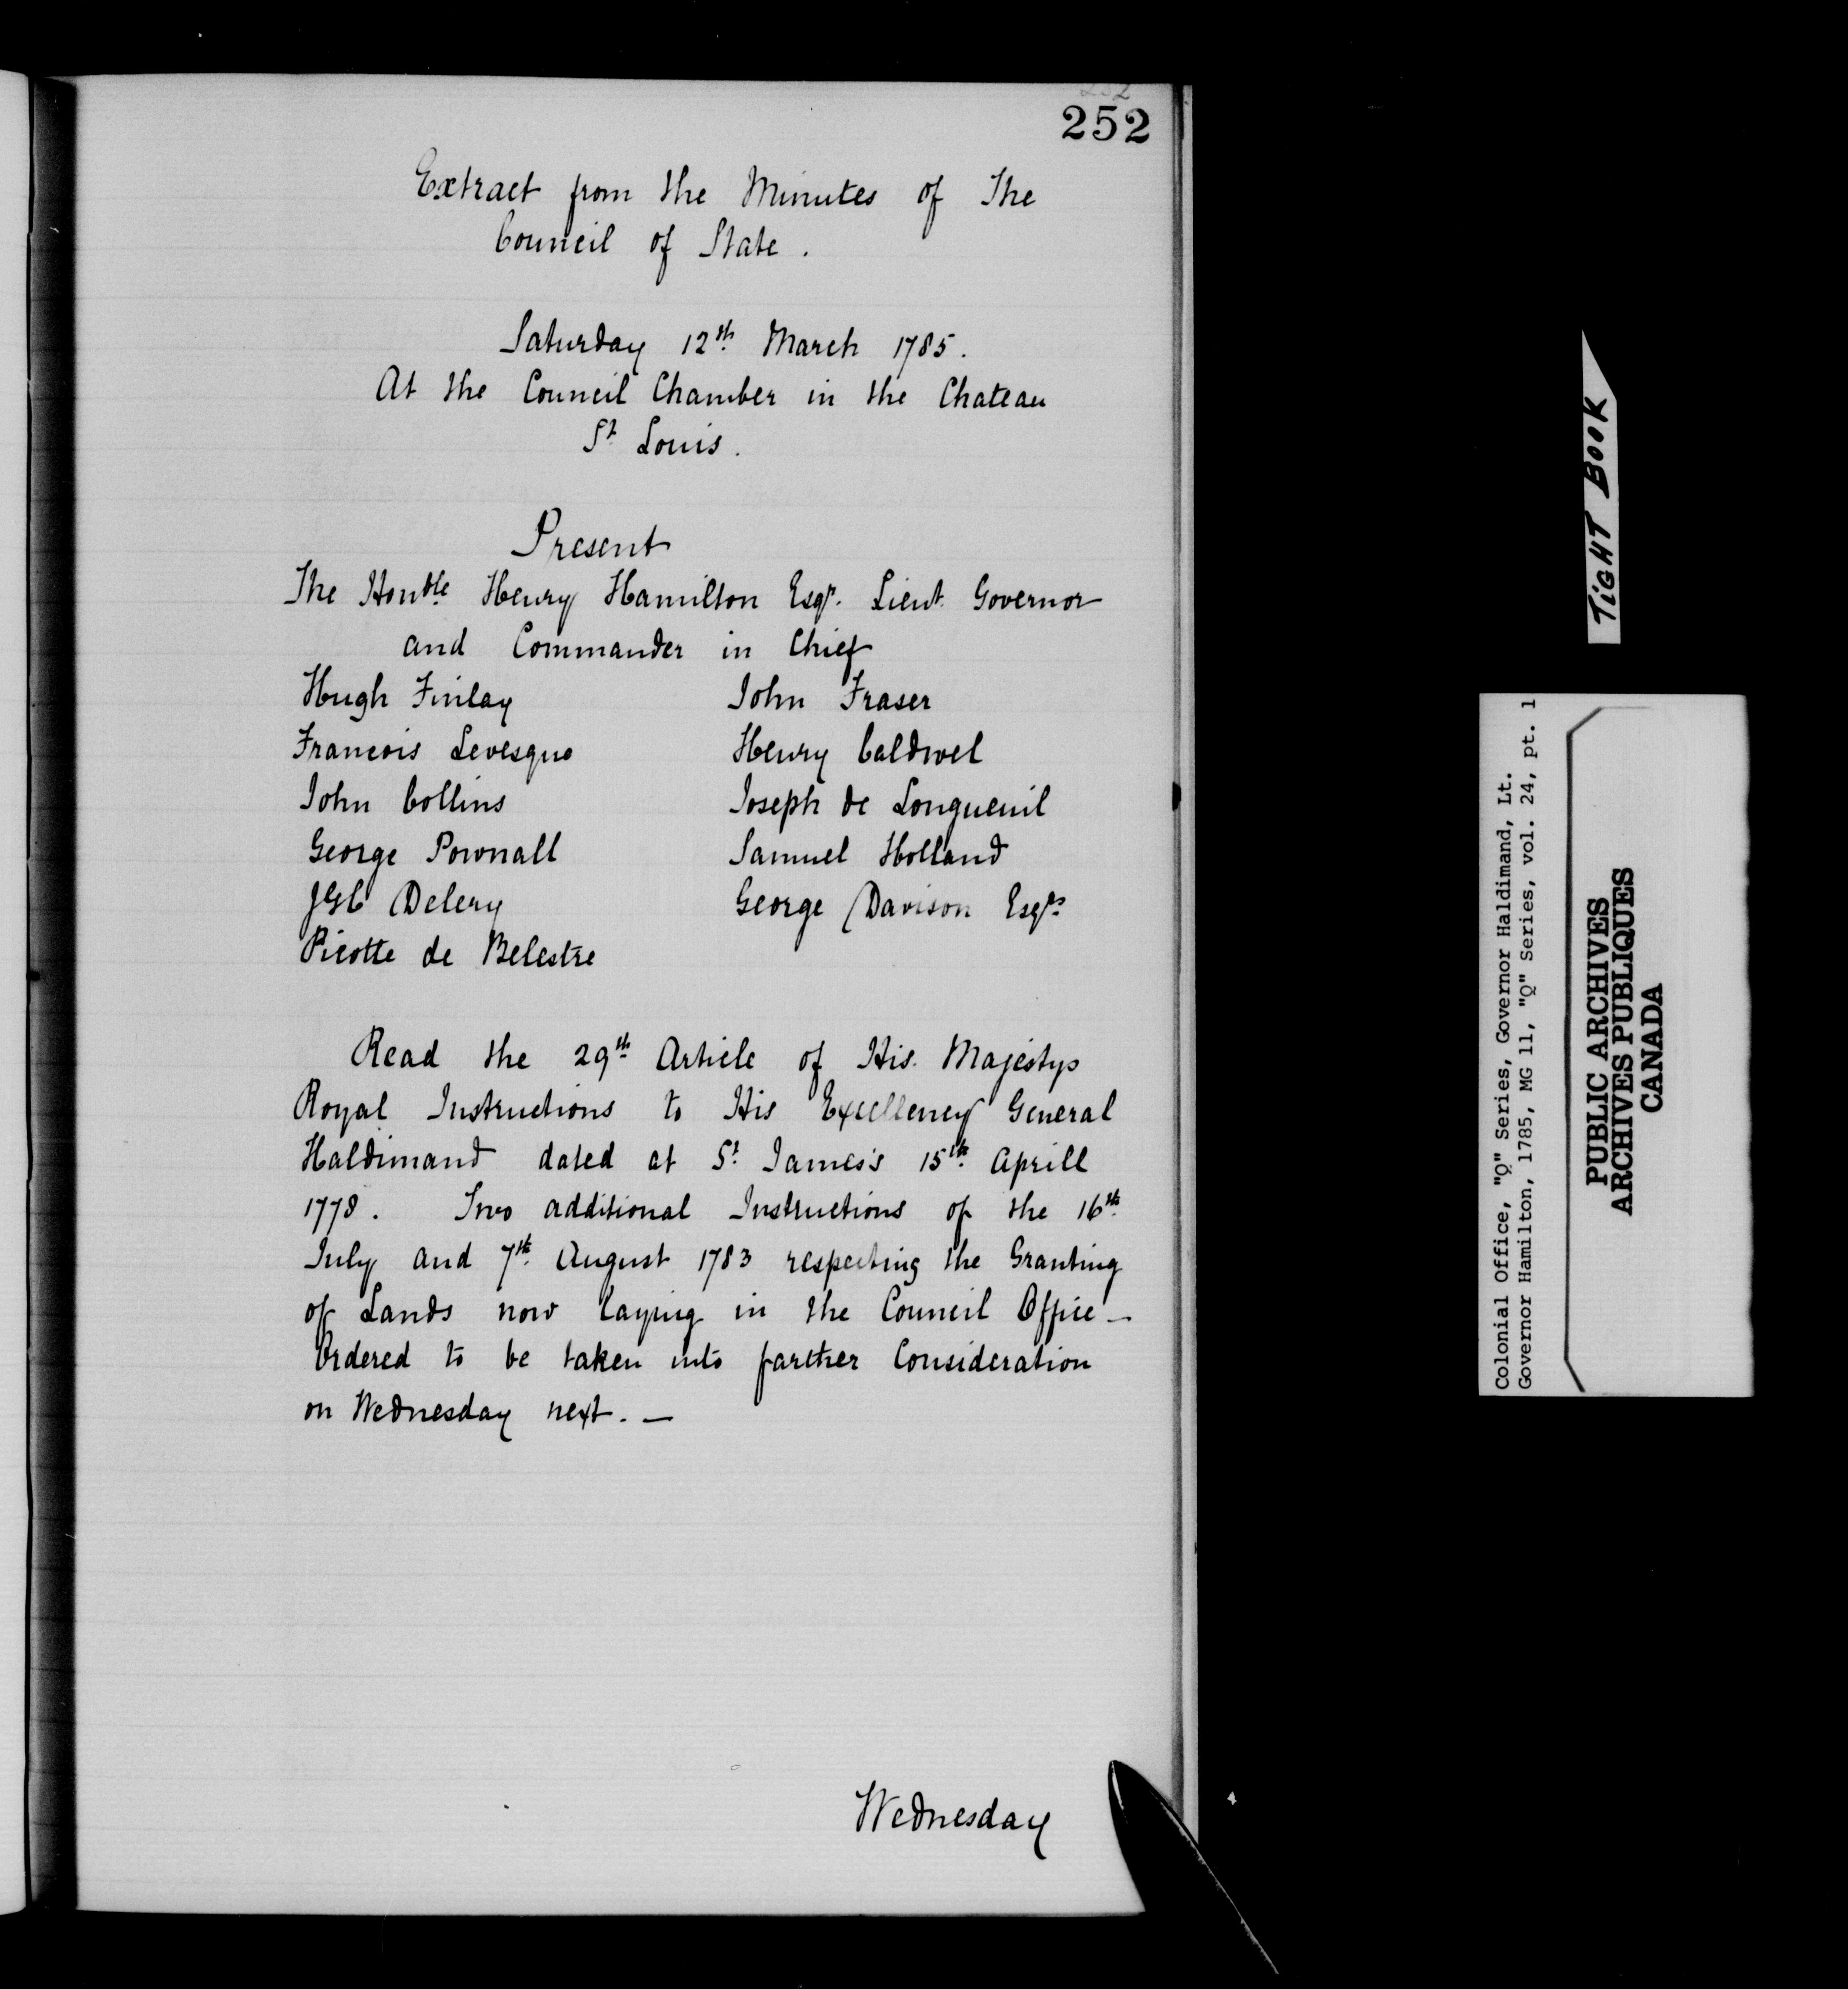 252
Extract from the Minutes of The
Council of State.
Saturday 12th March 1785.
At the Council Chamber in the Chateau
St Louis.
Present
The Honble Henry Hamilton Esqr. Lieut. Governor
and Commander in Chief
Hugh Finlay John Fraser
Francois Levesque Henry Caldwel
John Collins Joseph de Longueuil
George Pownall Samuel Holland
JGC Delery George Davison Esqrs
Picotte de Belestre
Read the 29th Article of His Majestys
Royal Instructions to His Excellency General
Haldimand dated at St James's 15th Aprill
1778. Two additional Instructions of the 16th
July and 7th August 1783 respecting the Granting
of Lands now laying in the Council Office —
Ordered to be taken into farther Consideration
on Wednesday next. —
Wednesday
TiGHT BOOK
Colonial Office, "Q" Series, Governor Haldimand, Lt.
Governor Hamilton, 1785, MG 11, "Q" Series, vol. 24, pt. 1
PUBLIC ARCHIVES
ARCHIVES PUBLIQUES
CANADA